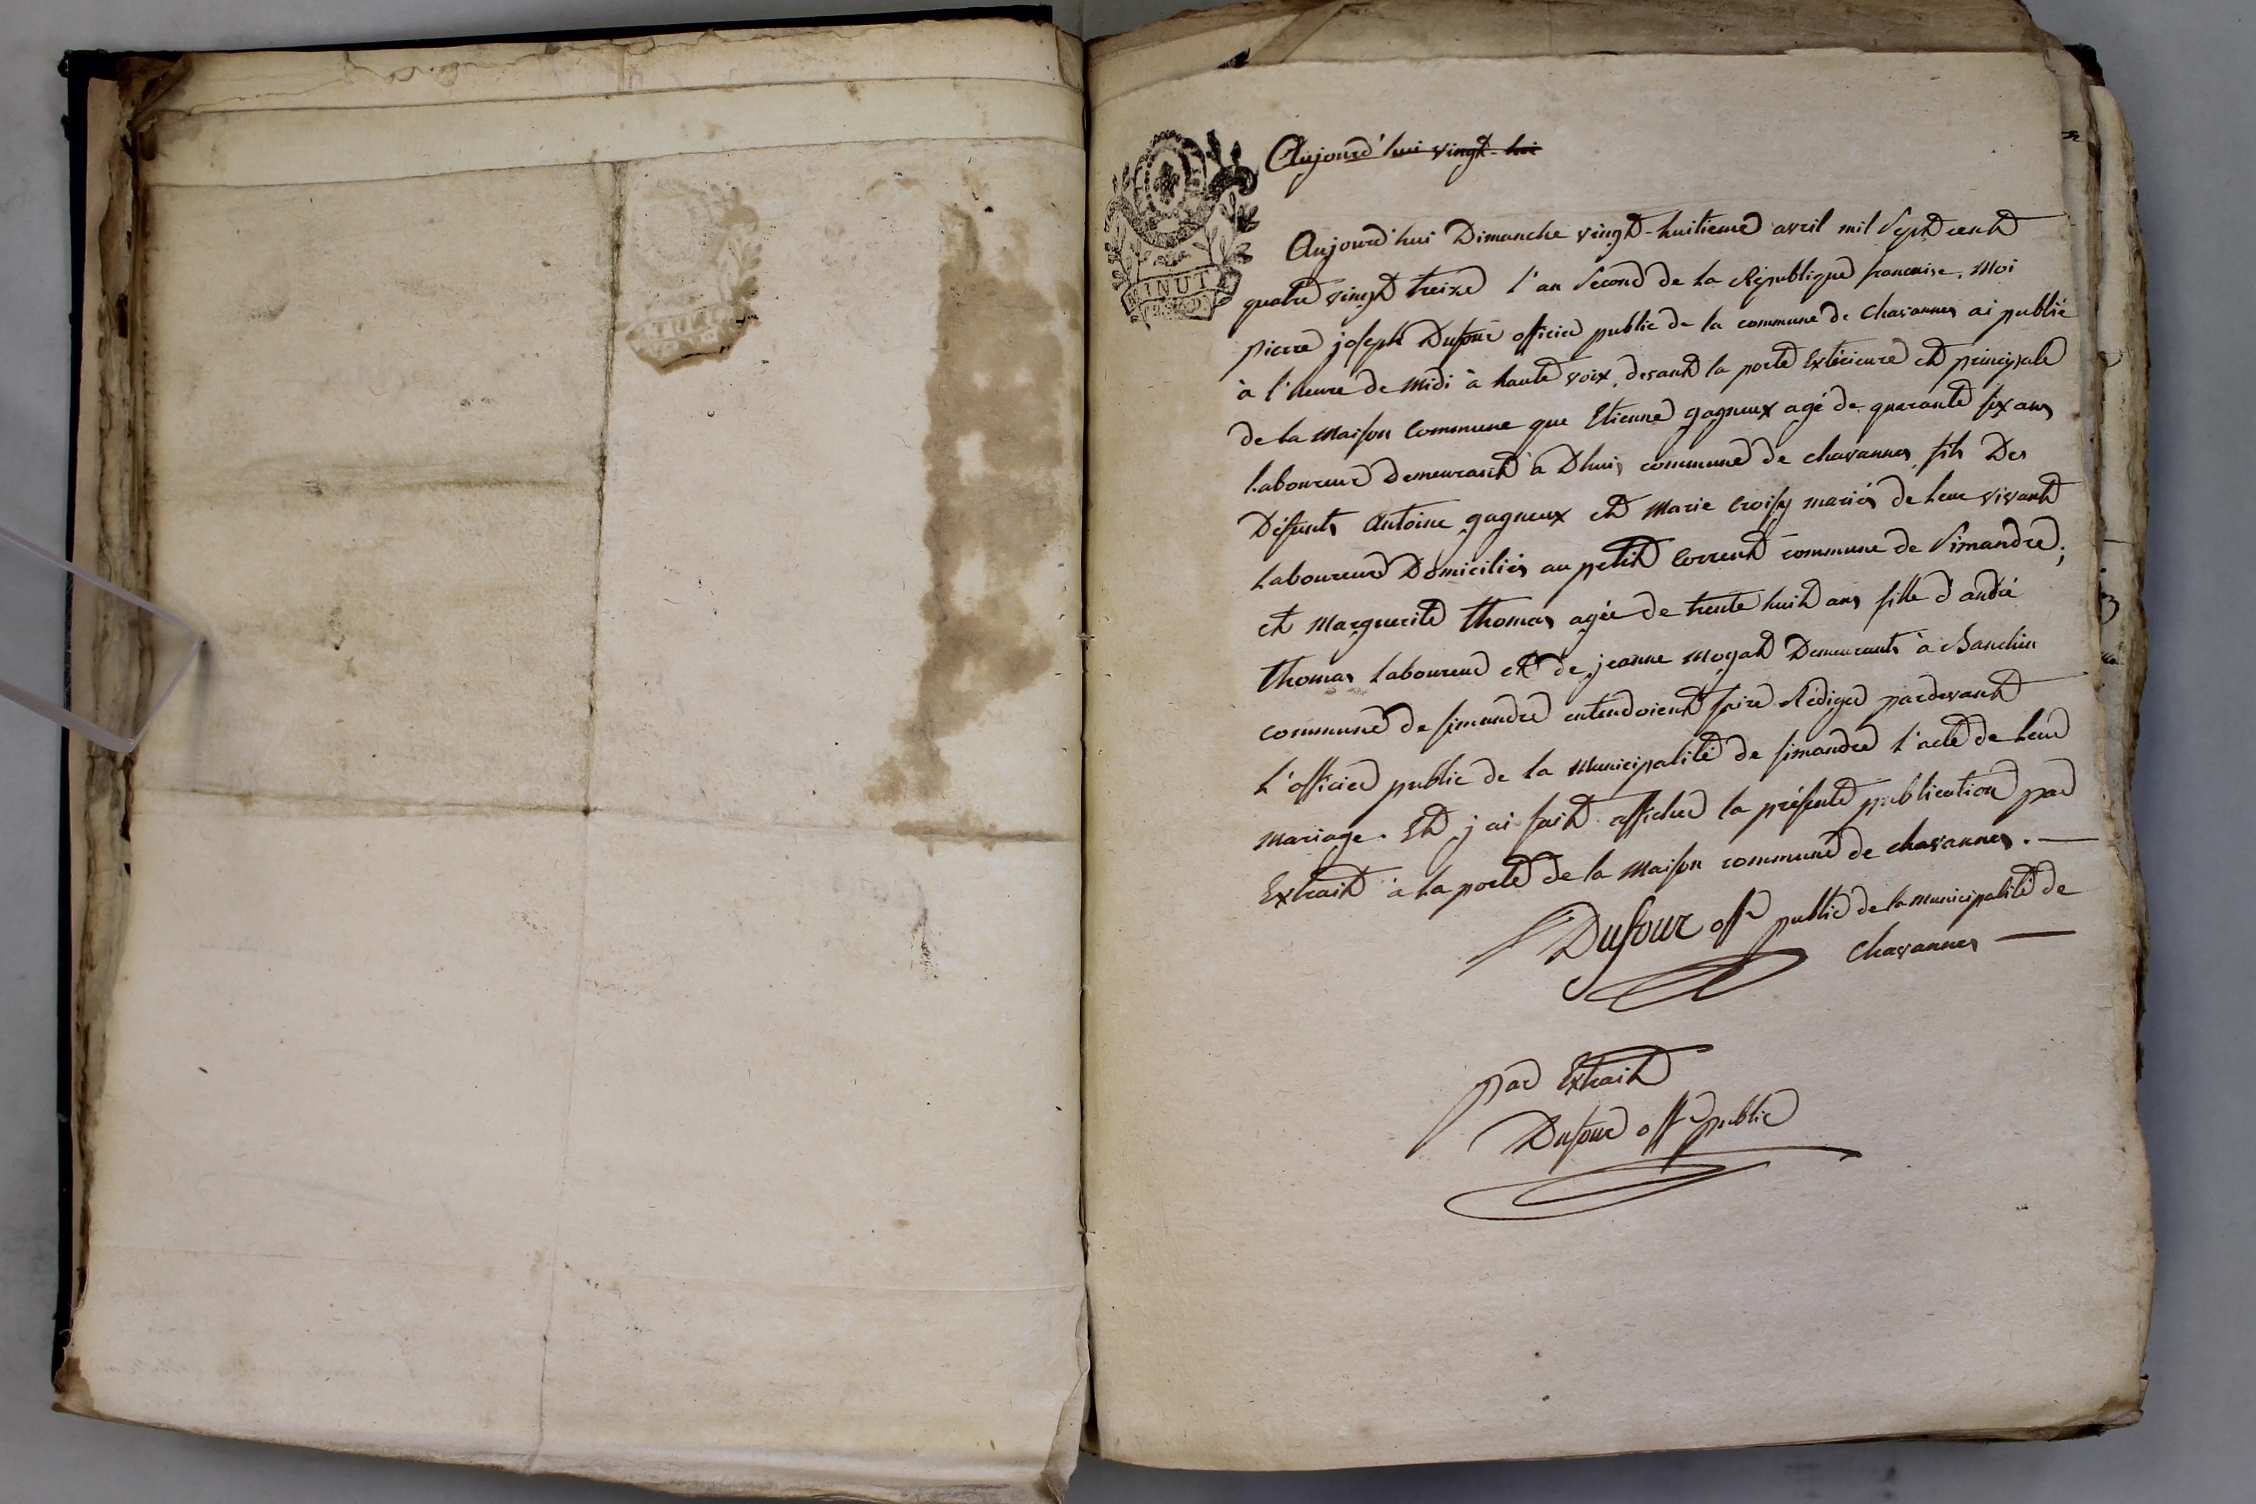 Aujourd'hui vingt-hui
Aujourd'hui Dimanche vingt-huitieme avril mil Sept cent
quatre vingt treize l'an Second de la République francaise, Moi
pierre joseph Dufour officier public de la commune de Chavannes ai publié
à l'heure de Midi à haute voix, devant la porte Extérieure et principale
de la Maison Commune que Etienne gagneux agé de quarante six ans
Laboureur demeurant à Dhuis commune de chavannes, fils Des
Défunts Antoine gagneux et Marie Croisy mariés de leur vivant
Laboureurs Domiciliés au petit Corrent commune de Simandre;
et Marguerite thomas agée de trente huit ans fille d'andré
thomas Laboureur et de jeanne Moyat Demeurants à
commune de simandre entendoient faire Rédiger pardevant
L'officier public de la Municipalité de simandre l'acte de leur
Mariage. Et j'ai fait afficher la présente publication par
Extrait à la porte de la Maison commune de chavannes.
Dufour offr public de la Municipalité de
Chavannes
par Extrait
Dufour offr public
MINUT